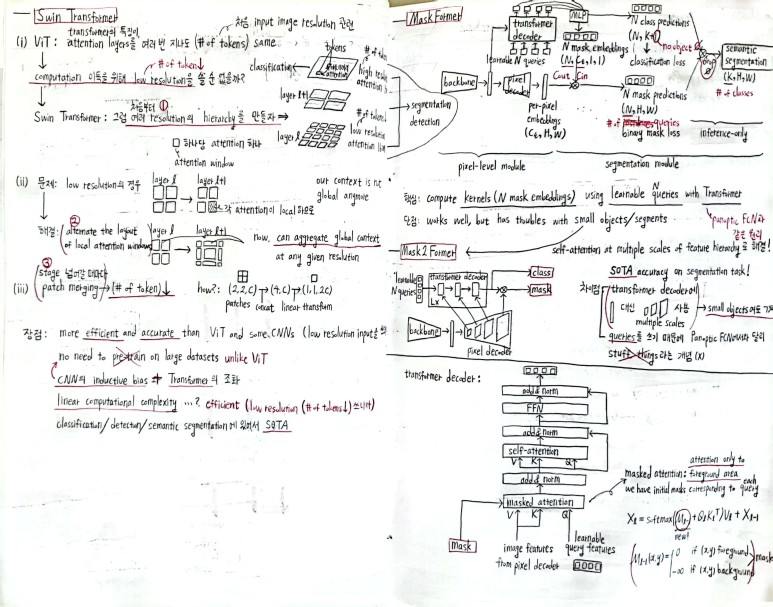 Swin Transformer
transformer의 특징이
처음 input image resolution 관련
(i) ViT : attention layer를 여러 번 지나도 (# of tokens) same
# of token↓
computation 이득을 위해 low resolution을 쓸 순 없을까?
처음부터 ①
Swin Transformer : 그럼 여러 resolution의 hierarchy를 만들자 ⇒
하나당 attention 하나
attention window
classification
tokens
high resol
attention
layer l+1
layer l
# of tokens
low resolution
attention
segmentation
detection
(ii) 문제: low resolution의 경우
layer l
layer l+1
각 attention이 local 하므로
our context is not
global anymore
②
해결: alternate the layout
of local attention windows
layer l
layer l+1
now, can aggregate global context
at any given resolution
③
stage 넘어갈 때마다
(iii) patch merging → (# of token)↓
how?: (2,2,c) → (4,c) → (1,1,2c)
patches concat linear transform
장점: more efficient and accurate than ViT and some CNNs (low resolution input을
no need to pre-train on large datasets unlike ViT
CNN의 inductive bias + Transformer의 조화
linear computational complexity ...? efficient (low resolution (# of tokens↓) 쓰니까)
classification/detection/semantic segmentation에 있어서 SOTA
Mask Former
transformer
decoder
MLP
learnable N queries
N mask embeddings
(N, Cε, 1, 1)
N class predictions
(N, K+1) no object
classification loss
semantic
segmentation
(K, H, W)
# of classes
backbone
pixel
decoder
Cout
Cin
per-pixel
embeddings
(Cε, H, W)
N mask predictions
(N, H, W)
# of queries
binary mask loss
inference-only
pixel-level module
segmentation module
핵심: compute kernels (N mask embeddings) using learnable N queries with Transformer
단점: works well, but has troubles with small objects/segments
panoptic FCN과
같은 원리
Mask2Former
self-attention at multiple scales of feature hierarchy로 해결!
learnable
N queries
transformer decoder
L×
class
mask
backbone
pixel decoder
SOTA accuracy on segmentation task!
차이점 transformer decoder에
대신 사용
multiple scales
small objects에도
queries를 쓰기 때문에 Panoptic FCN에서와 달리
stuff, things라는 개념 (X)
transformer decoder:
add & norm
FFN
add & norm
self-attention
V K Q
add & norm
masked attention
V K Q
Mask
image features
from pixel decoder
learnable
query features
attention only to
masked attention: foreground area
we have initial masks corresponding to each query
Xl = softmax(Ml-1 + QlKlᵀ)Vl + Xl-1
new!
Ml-1(x,y) = 0 if (x,y) foreground
-∞ if (x,y) background
mask